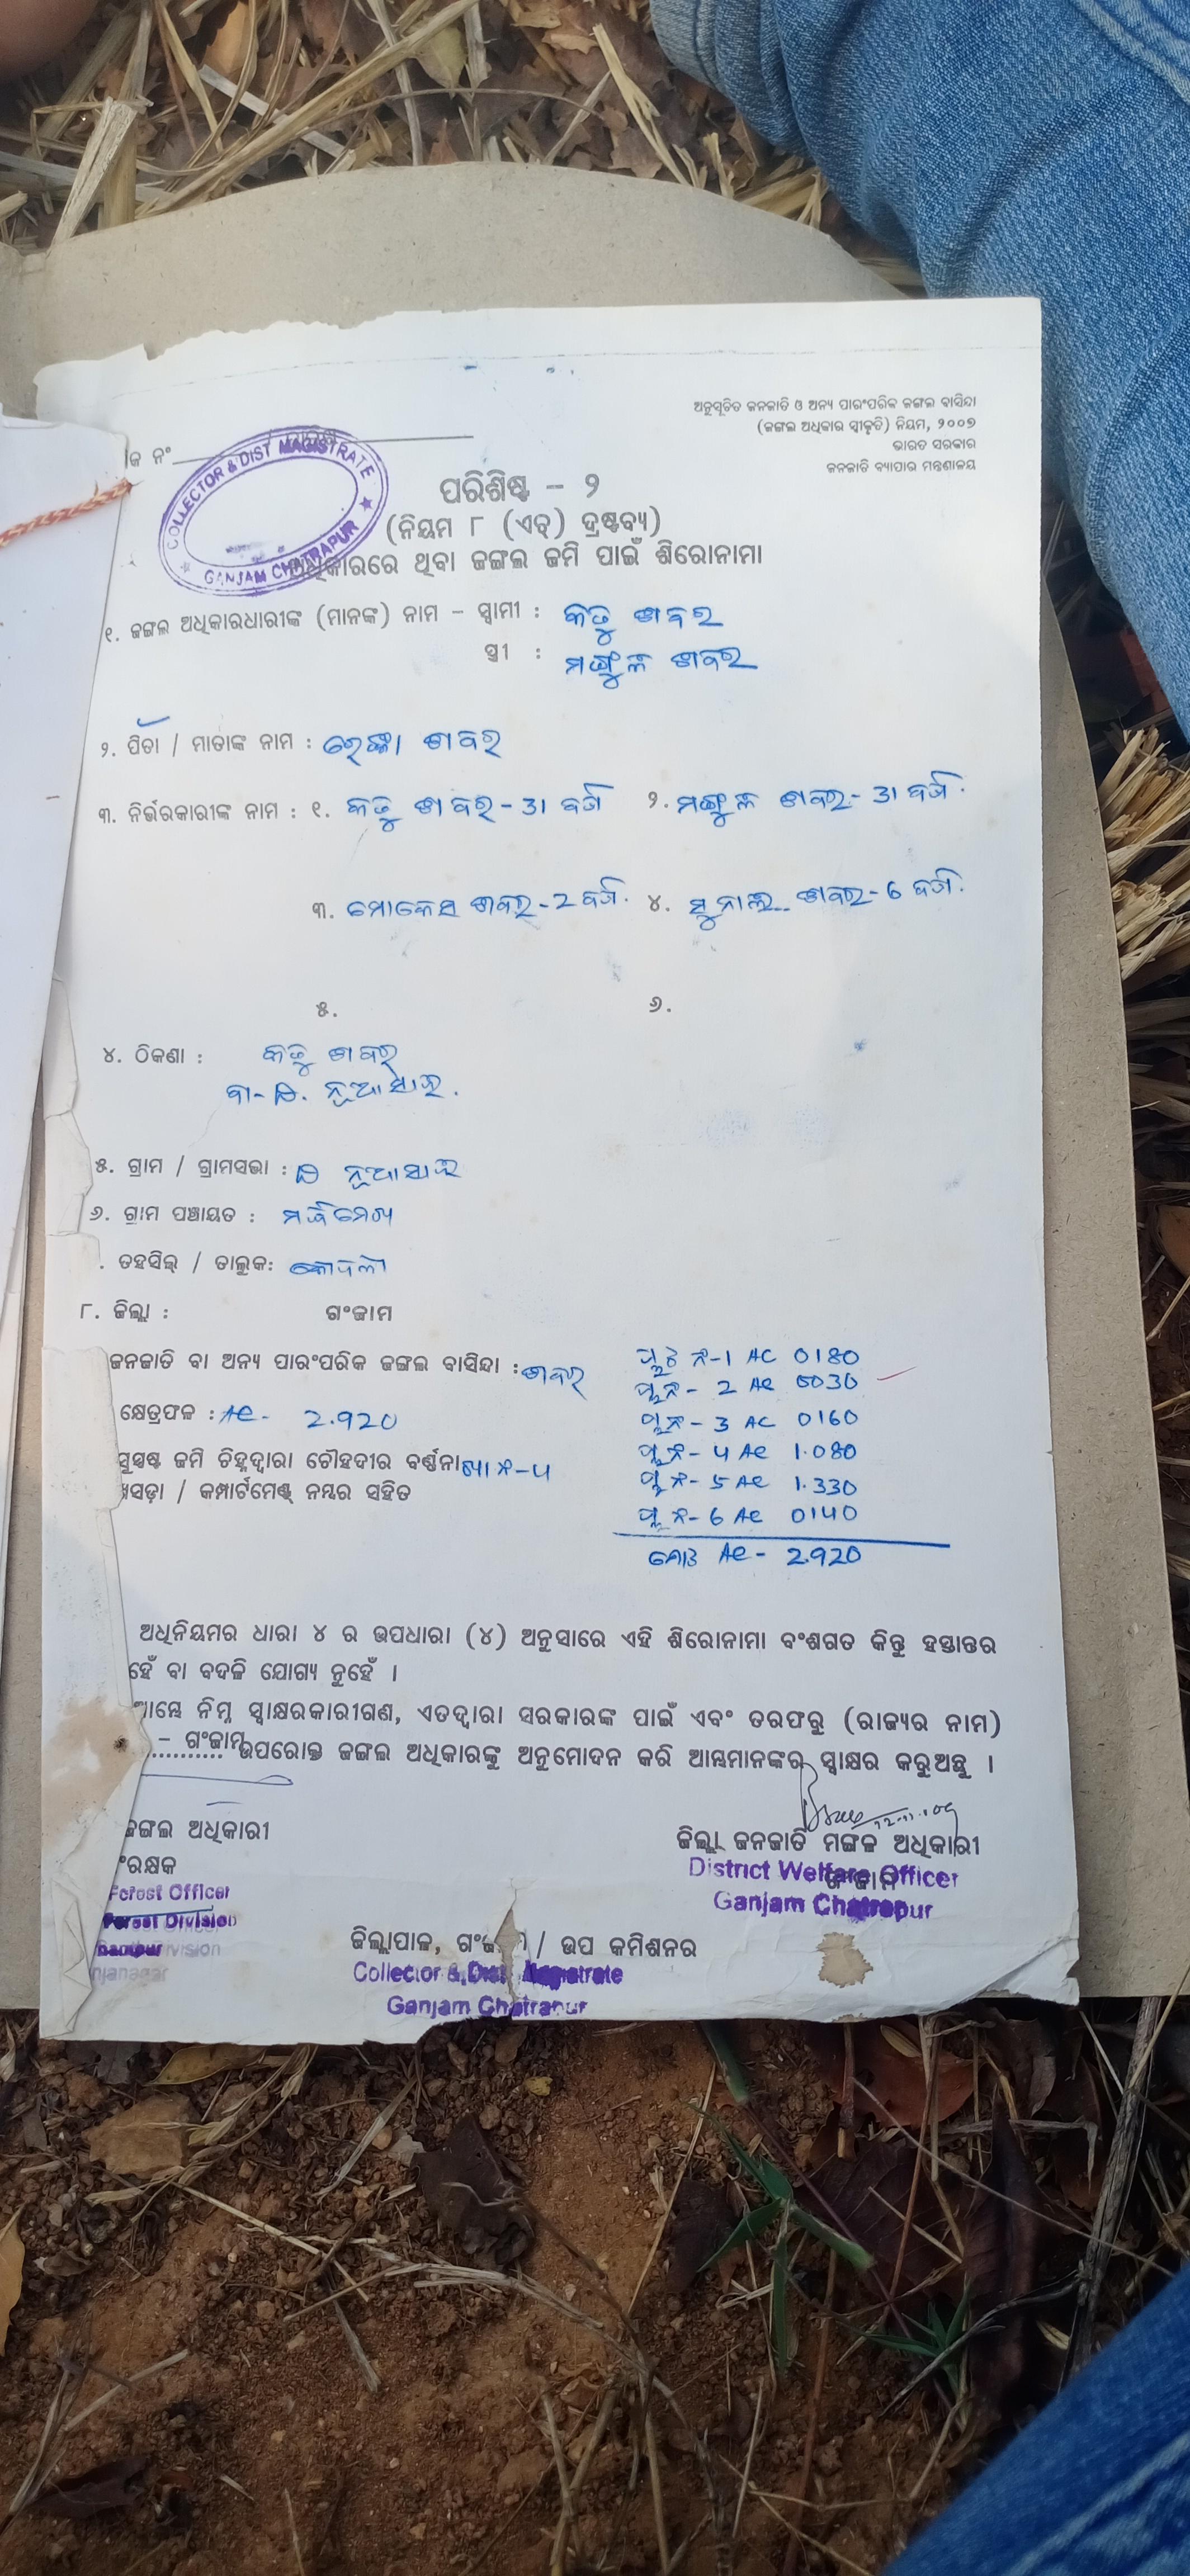 ଅନୁସୂଚିତ ଜନଜାତି ଓ ଅନ୍ୟ ପାରଂପରିକ ଜଙ୍ଗଲ ବାସିନ୍ଦା
(ଜଙ୍ଗଲ ଅଧିକାର ସ୍ୱୀକୃତି) ନିୟମ, ୨୦୦୭
ଭାରତ ସରକାର
ଜନଜାତି ବ୍ୟାପାର ମନ୍ତ୍ରଣାଳୟ
ନଂ
COLLECTOR & DIST MAGISTRATE
GANJAM CHATRAPUR
ପରିଶିଷ୍ଟ - ୨
(ନିୟମ ୮ (ଏଚ୍) ଦ୍ରଷ୍ଟବ୍ୟ)
ଅଧିକାରରେ ଥିବା ଜଙ୍ଗଲ ଜମି ପାଇଁ ଶିରୋନାମା
୧. ଜଙ୍ଗଲ ଅଧିକାରଧାରୀଙ୍କ (ମାନଙ୍କ) ନାମ - ସ୍ୱାମୀ : ଶବର
ସ୍ତ୍ରୀ : ମଞ୍ଜୁଳ ଶବର
୨. ପିତା / ମାତାଙ୍କ ନାମ : ଶବର
୩. ନିର୍ଭରକାରୀଙ୍କ ନାମ : ୧. ଶବର - 31 ବର୍ଷ ୨. ମଞ୍ଜୁଳ ଶବର - 31 ବର୍ଷ
୩. ଶବର - 2 ବର୍ଷ ୪. ଶବର - 6 ବର୍ଷ
୫. ୬.
୪. ଠିକଣା : ଶବର
ନୂଆସାହି
୫. ଗ୍ରାମ / ଗ୍ରାମସଭା : ନୂଆସାହି
୬. ଗ୍ରାମ ପଞ୍ଚାୟତ :
. ତହସିଲ୍ / ତାଲୁକ:
୮. ଜିଲ୍ଲା : ଗଂଜାମ
ଜନଜାତି ବା ଅନ୍ୟ ପାରଂପରିକ ଜଙ୍ଗଲ ବାସିନ୍ଦା : ଶବର
ପ୍ଲଟ ନଂ-1 AC 0180
ପ୍ଲ ନଂ- 2 AC 0030
କ୍ଷେତ୍ରଫଳ : AC - 2.920
ପ୍ଲ ନଂ- 3 AC 0160
ସୁସ୍ପଷ୍ଟ ଜମି ଚିହ୍ନଦ୍ୱାରା ଚୌହଦୀର ବର୍ଣ୍ଣନା
ପ୍ଲ ନଂ- 4 AC 1.080
ଖସଡ଼ା / କମ୍ପାର୍ଟମେଣ୍ଟ୍ ନମ୍ବର ସହିତ
ପ୍ଲ ନଂ- 5 AC 1.330
ପ୍ଲ ନଂ- 6 AC 0140
ମୋଟ AC - 2.920
ଅଧିନିୟମର ଧାରା ୪ ର ଉପଧାରା (୪) ଅନୁସାରେ ଏହି ଶିରୋନାମା ବଂଶଗତ କିନ୍ତୁ ହସ୍ତାନ୍ତର
ହେଁ ବା ବଦଳି ଯୋଗ୍ୟ ନୁହେଁ ।
ଆମ୍ଭେ ନିମ୍ନ ସ୍ୱାକ୍ଷରକାରୀଗଣ, ଏତଦ୍ୱାରା ସରକାରଙ୍କ ପାଇଁ ଏବଂ ତରଫରୁ (ରାଜ୍ୟର ନାମ)
- ଗଂଜାମ ........... ଉପରୋକ୍ତ ଜଙ୍ଗଲ ଅଧିକାରଙ୍କୁ ଅନୁମୋଦନ କରି ଆମ୍ଭମାନଙ୍କର ସ୍ୱାକ୍ଷର କରୁଅଛୁ ।
ଜଙ୍ଗଲ ଅଧିକାରୀ
ଜିଲ୍ଲା ଜନଜାତି ମଙ୍ଗଳ ଅଧିକାରୀ
ଂରକ୍ଷକ
District Welfare Officer
ଗଂଜାମ
Forest Officer
Ganjam Chatrapur
Forest Division
ଜିଲ୍ଲାପାଳ, ଗଂଜାମ / ଉପ କମିଶନର
Collector & Dist. Magistrate
Ganjam Chatrapur